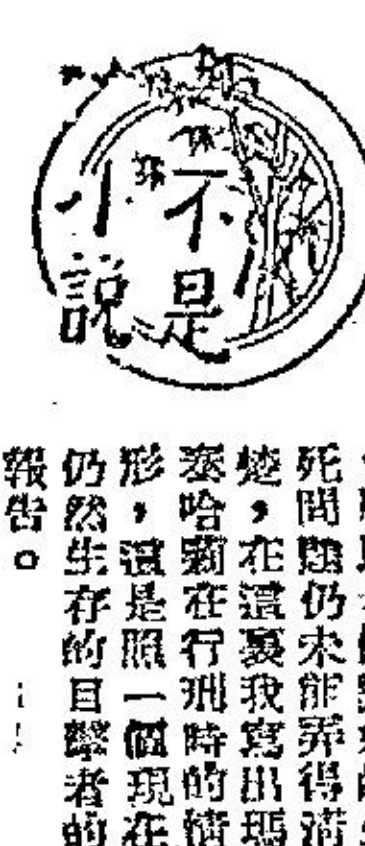 不是
小說
死問題仍未能弄得清
楚，在這裏我寫出瑪
塞哈莉在行刑時的情
形，這是照一個現在
仍然生存的目擊者的
報告。